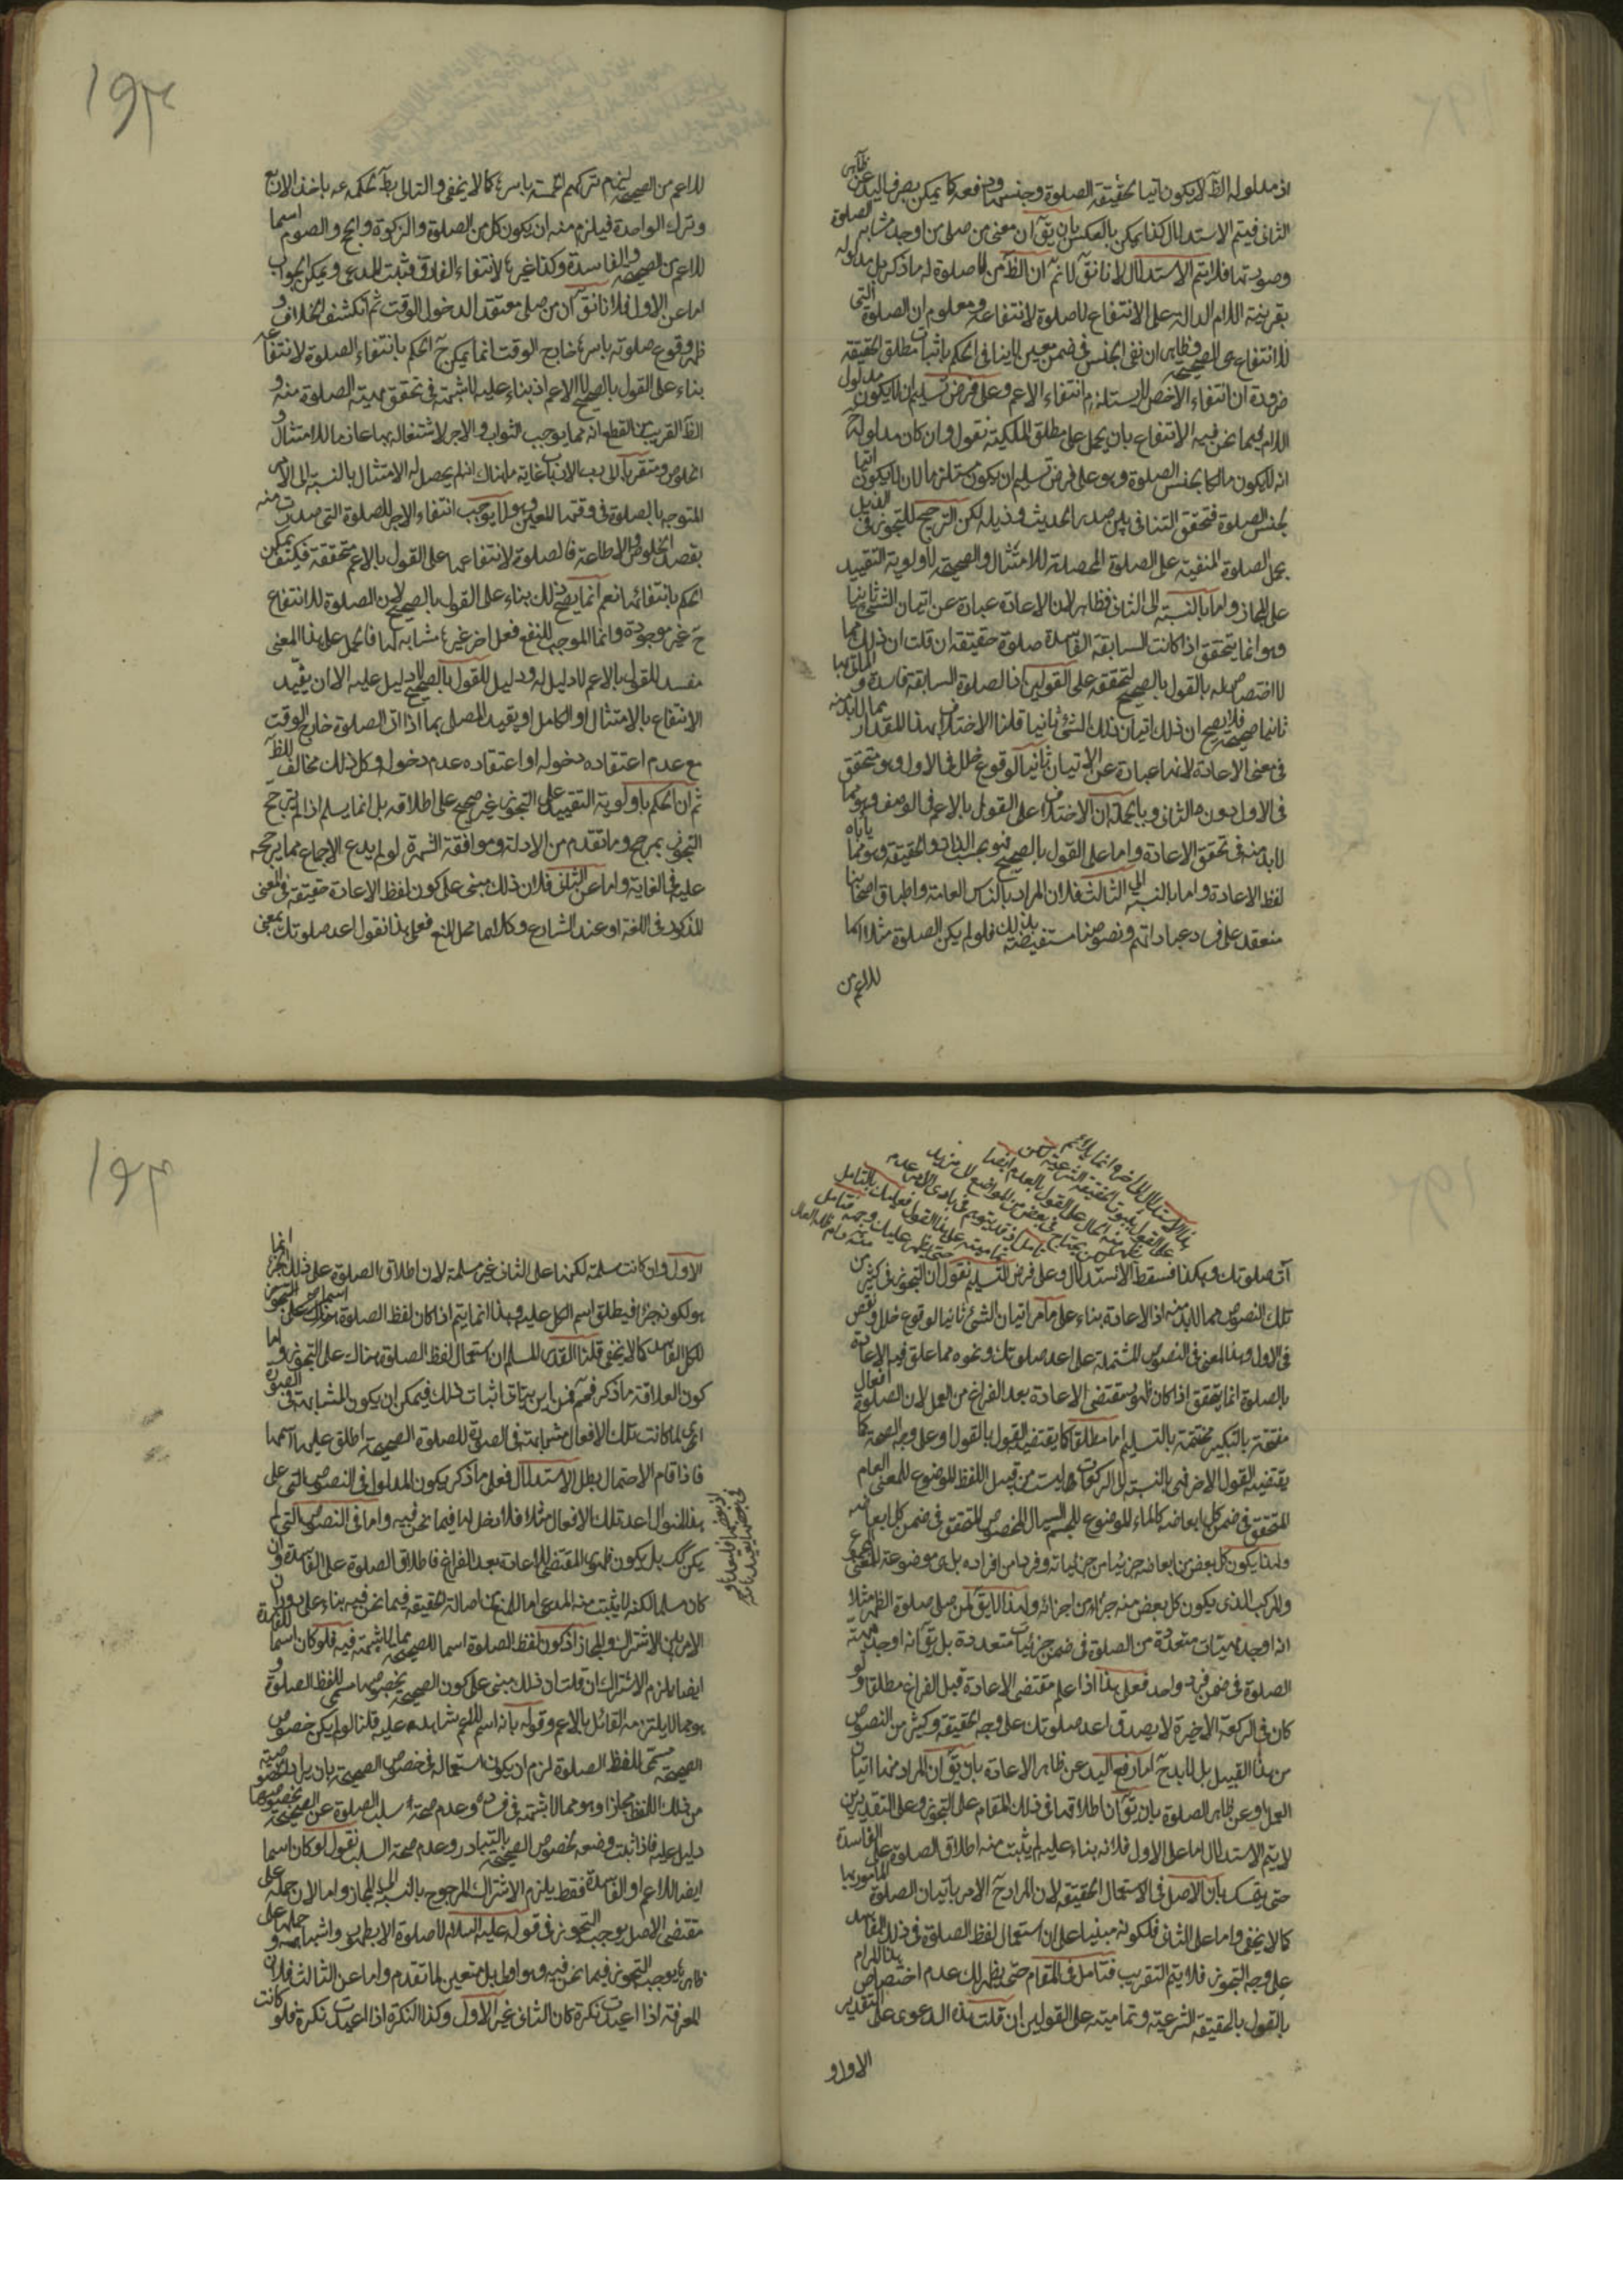 اذ مدلوله الظ لا يكون آتيا بحقيقة الصلوة وجنسها ودفعه كما يمكن بصرف اليد عن ظاهر
الثانى فيتم الاستدلال كذا يمكن بالعكس بان يق ان معنى من صلى من اوجد مشابه الصلوة
وصورتها فلا يتم الاستدلال لانا نق لا نم ان الظ من لا صلوة له ما ذكر بل مدلوله
بقرينة اللام الدالة على الانتفاع لا صلوة لانتفاعه ومعلوم ان الصلوة التى
للانتفاع هى الصحيحة وظاهر ان نفى الجنس فى ضمن معين لا ينافى الحكم باثبات مطلق الحقيقة
ضرورة ان انتفاء الاخص لا يستلزم انتفاء الاعم وعلى فرض تسليم ان لا يكون مدلول
اللام فيما نحن فيه الانتفاع بان يحمل على مطلق الملكية نقول وان كان مدلوله ح
انه لا يكون مالكا بجنس الصلوة وهو على فرض تسليم ان يكون مستلزما لان لا يكون آتيا
بجنس الصلوة فتحقق التنافى بين صدر الحديث وذيله لكن الترجيح للتجوز فى الذيل
بحمل الصلوة المنفية على الصلوة المحصلة للامتثال والصحيحة لاولوية التقييد
على المجاز واما بالنسبة الى الثانى فظاهر لان الاعادة عبارة عن اتيان الشئ ثانيا
وهو انما يتحقق اذا كانت السابقة الفاسدة صلوة حقيقة ان قلت ان ذلك مما
لا اختصاص له بالقول بالصحيح لتحققه على القولين اذ الصلوة السابقة فاسدة و
ثانيا صحيحة فلا يصح ان ذلك اتيان ذلك الشئ ثانيا قلنا الاختلاف بهذا المقدار مما لا بد منه
فى معنى الاعادة لانها عبارة عن الاتيان ثانيا لوقوع خلل فى الاول وهو متحقق
فى الاول دون الثانى وبالجملة ان الاختلاف على القول بالاعم فى الوصف وهو مما
لا بد منه فى تحقق الاعادة واما على القول بالصحيح فهو بحسب الذات والحقيقة وهو مما يأباه
لفظ الاعادة واما بالنسبة الى الثالث فلان المراد بالناس العامة واطباق اصحابنا
منعقد على فساد عباداتهم ونصوصنا مستفيضة بذلك فلو لم يكن الصلوة مثلا اسما
للاعم من
للاعم من الصحيحة لزم تركهم الخمسة باسرها كما لا يخفى والتالى بط لحكمه عم باخذ الاربع
وترك الواحدة فيلزم منه ان يكون كل من الصلوة والزكوة والحج والصوم اسما
للاعم من الصحيحة والفاسدة وكذا غيرها لانتفاء الفارق فثبت المدعى ويمكن الجواب
اما عن الاول فلانا نق ان من صلى معتقدا لدخول الوقت ثم انكشف الخلاف و
ظهر وقوع صلوته باسرها خارج الوقت انما يمكن ح الحكم بانتفاء الصلوة لانتفاعه
بناء على القول بالصحيح لا الاعم اذ بناء عليه لا شبهة فى تحقق مهية الصلوة منه و
الظ القريب من القطع انه مما يوجب الثواب والاجر لاشتغاله بها عازما للامتثال و
الخلوص ومتقربا الى رب الارباب غاية ما هناك انه لم يحصل له الامتثال بالنسبة الى الامر
المتوجه بالصلوة فى وقتها المعين وهو لا يوجب انتفاء الاجر للصلوة التى صدرت منه
بقصد الخلوص والاطاعة فالصلوة لانتفاعه على القول بالاعم متحققة فكيف يمكن
الحكم بانتفائها نعم انما يصح ذلك بناء على القول بالصحيح لان الصلوة للانتفاع
ح غير موجودة وانما الموجب للنفع فعل اخر غيرها مشابه لها فالحمل على هذا المعنى
مفسد للقول بالاعم لا دليل له ودليل للقول بالصحيح لا دليل عليه الا ان يقيد
الانتفاع بالامتثال او الكامل او يقيد المصلى بما اذا اتى الصلوة خارج الوقت
مع عدم اعتقاده دخوله او اعتقاده عدم دخوله وكل ذلك مخالف للظ
ثم ان الحكم باولوية التقييد على التجوز غير صحيح على اطلاقه بل انما يسلم اذا لم يترجح
التجوز بمرجح وما تقدم من الادلة وموافقة الشهرة لو لم يدع الاجماع مما يرجحه
عليه فى الغاية واما عن الثانى فلان ذلك مبنى على كون لفظ الاعادة حقيقة فى المعنى
المذكور فى اللغة او عند الشارع وكلاهما محل المنع فعلى هذا نقول اعد صلوتك بمعنى
آت صلوتك وهكذا فسقط الاستدلال وعلى فرض التسليم نقول ان التجوز فى كثير من
تلك النصوص مما لا بد منه اذ الاعادة بناء على ما مر اتيان الشئ ثانيا لوقوع خلل ونقص
فى الاول وهذا المعنى فى النصوص المشتملة على اعد صلوتك ونحوه مما علق فيه الاعادة
بالصلوة انما يتحقق اذا كان ظهور مقتضى الاعادة بعد الفراغ من العمل لان الصلوة افعال
مفتتحة بالتكبير مختتمة بالتسليم اما مطلقا كما يقتضيه القول بالقول او على وجه الصحة كما
يقتضيه القول الاخر فهى بالنسبة الى الركعات ليست من قبيل اللفظ الموضوع للمعنى العام
المتحقق فى ضمن كل ابعاضه كالماء الموضوع للجسم السيال المخصوص المتحقق فى ضمن كل ابعاضه
ولهذا يكون كل بعض من ابعاضه جزئيا من جزئياته وفردا من افراده بل هى موضوعة للمعنى المجموع
والمركب الذى يكون كل بعض منه جزءا من اجزائه ولهذا لا يق لمن صلى صلوة الظهر مثلا
انه اوجد مهيات متعددة من الصلوة فى ضمن جزئيات متعددة بل يق انه اوجد مهية
الصلوة فى ضمن فرد واحد فعلى هذا اذا علم مقتضى الاعادة قبل الفراغ مطلقا ولو
كان فى الركعة الاخيرة لا يصدق اعد صلوتك على وجه الحقيقة وكثير من النصوص
من هذا القبيل بل لا بد ح اما رفع اليد عن ظاهر الاعادة بان يق ان المراد منها اتيان
العمل او عن ظاهر الصلوة بان يق ان اطلاقها فى ذلك المقام على التجوز وعلى التقديرين
لا يتم الاستدلال اما على الاول فلانه بناء عليه لم يثبت منه اطلاق الصلوة على الفاسدة
حتى يتمسك بان الاصل فى الاستعمال الحقيقة لان المراد ح الامر باتيان الصلوة المأمور بها
كما لا يخفى واما على الثانى فلكونه مبنيا على ان استعمال لفظ الصلوة فى ذلك الفاسد
على وجه التجوز فلا يتم التقريب فتامل فى المقام حتى يظهر لك عدم اختصاص هذا المرام
بالقول بالحقيقة الشرعية وتماميته على القولين ان قلت هذه الدعوى على التقدير
الاول و
الاول وان كانت مسلمة لكنها على الثانى غير مسلمة لان اطلاق الصلوة على ذلك الجزء انما
هو لكونه جزءا فيطلق اسم الكل عليه وهذا انما يتم اذا كان لفظ الصلوة اسما
للكل الفاسد كما لا يخفى قلنا القدر المسلم ان استعمال لفظ الصلوة هناك على التجوز واما
كون العلاقة ما ذكر فمم فمن اين يتاتى اثبات ذلك فيمكن ان يكون المشابهة فى الصورة
اى لما كانت تلك الافعال مشابهة فى الصورة للصلوة الصحيحة اطلق عليها اسمها
فاذا قام الاحتمال بطل الاستدلال فعلى ما ذكر يكون المدلول فى النصوص التى على
هذا المنوال اعد تلك الافعال مثلا فلا دخل لها فيما نحن فيه واما فى النصوص التى لم
يكن كك بل يكون ظهور المقتضى للاعادة بعد الفراغ فاطلاق الصلوة على الفاسدة وان
كان مسلما لكنه لا يثبت منه المدعى اما لمنع اصالة الحقيقة فيما نحن فيه بناء على دوران
الامر بين الاشتراك والمجاز اذ كون لفظ الصلوة اسما للصحيحة مما لا شبهة فيه فلو كان اسما للفاسدة
ايضا يلزم الاشتراك ان قلت ان ذلك مبنى على كون الصحيحة بخصوصها مسمى للفظ الصلوة و
هو مما لا يلتزمه القائل بالاعم وقوله بانه اسم للاعم شاهد عليه قلنا لو لم يكن خصوص
الصحيحة مسمى للفظ الصلوة لزم ان يكون استعماله فى خصوص الصحيحة بان يراد الخصوصية
من ذلك اللفظ مجازا وهو مما لا شبهة فى فساده وعدم صحة سلب الصلوة عن الصحيحة بخصوصها
دليل عليه فاذا ثبت وضعه بخصوص الصحيحة بالتبادر وعدم صحة السلب نقول لو كان اسما
ايضا للاعم او الفاسدة فقط يلزم الاشتراك المرجوح بالنسبة الى المجاز واما لان حمله على
مقتضى الاصل يوجب التجوز فى قوله عليه السلام لا صلوة الا بطهور واشباهه وحملها على
ظاهرها يوجب التجوز فيما نحن فيه وهو اولى بل متعين لما تقدم واما عن الثالث فلان
المعرفة اذا اعيدت نكرة كان الثانى غير الاول وكذا النكرة اذا اعيدت نكرة فلو كانت